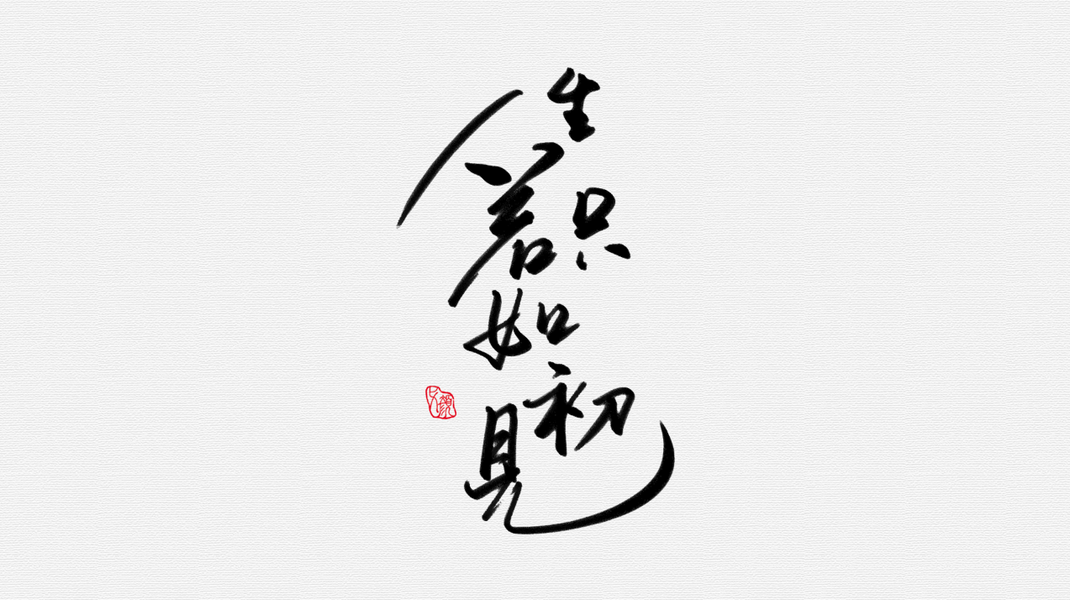 人生
若只
如初
見